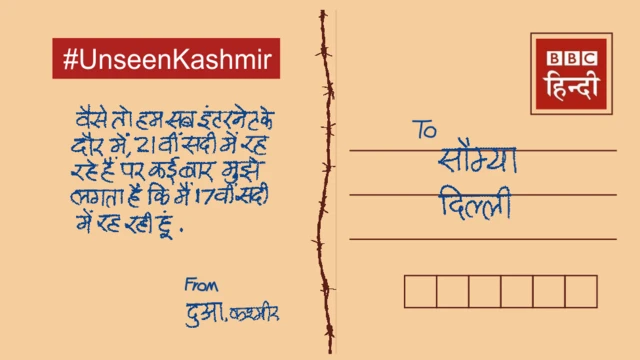 #UnseenKashmir
वैसे तो हम सब इंटरनेट के
दौर में, 21वीं सदी में रह
रहे हैं पर कई बार मुझे
लगता है कि मैं 17वीं सदी
में रह रही हूं.
From
दुआ, कश्मीर
BBC
हिन्दी
To
सौम्या
दिल्ली